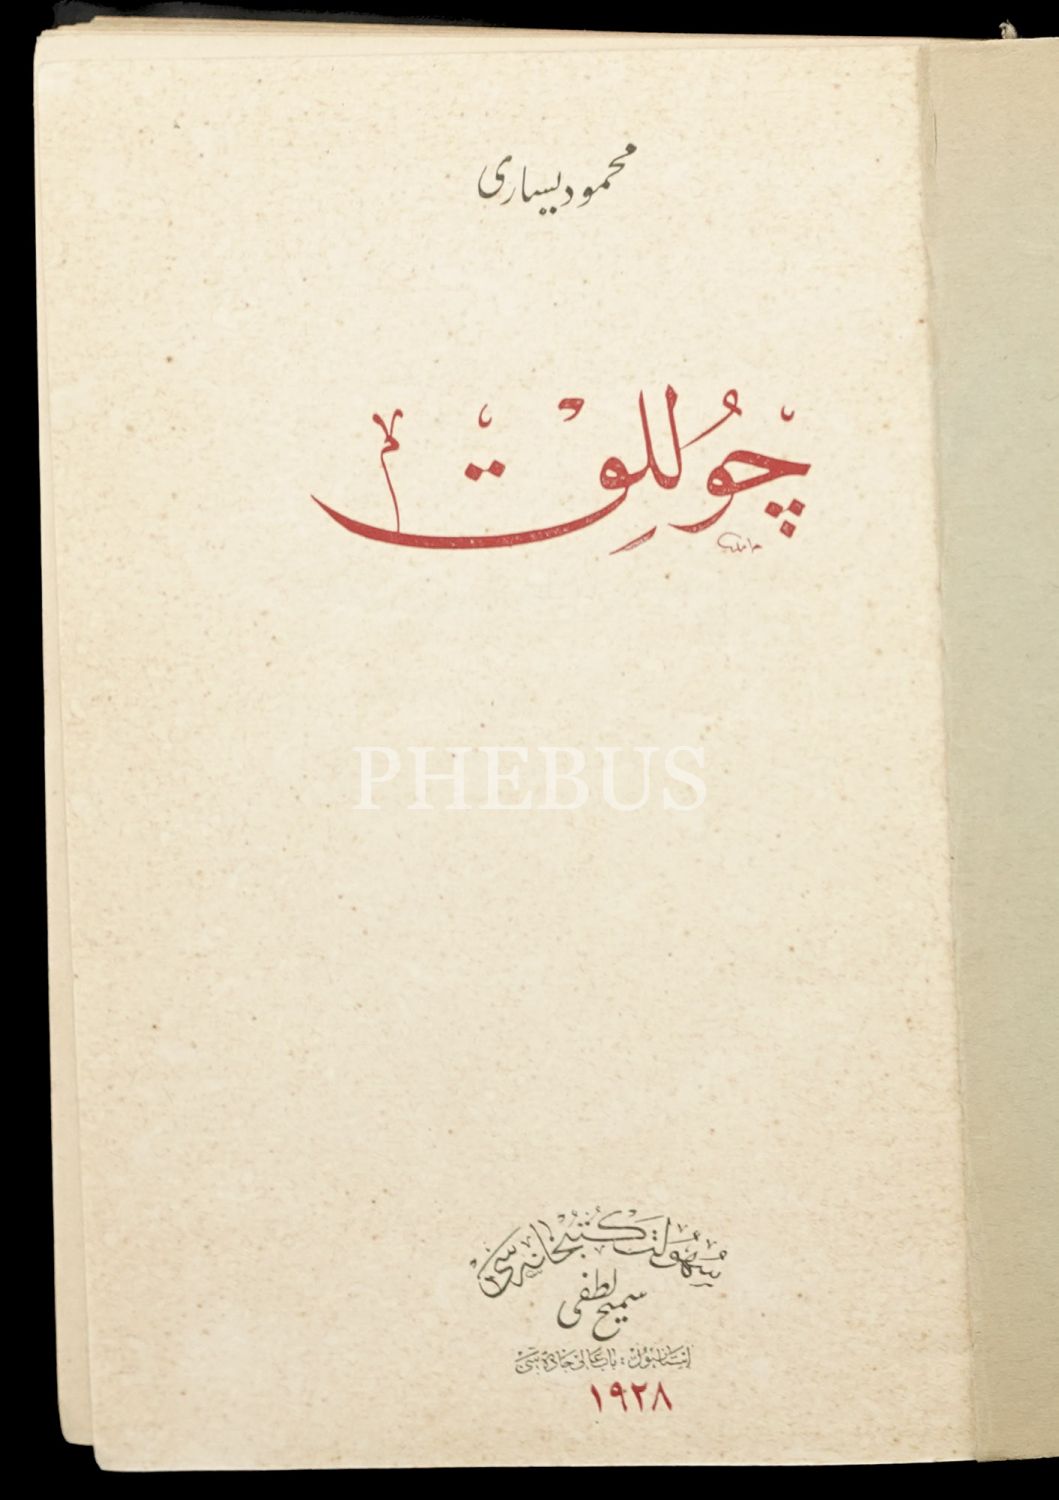 محمود يسارى
چوللق
PHEBUS
سهولت كتبخانه سى
سميح لطفى
استانبول : باب عالى جاده سى
١٩٢٨